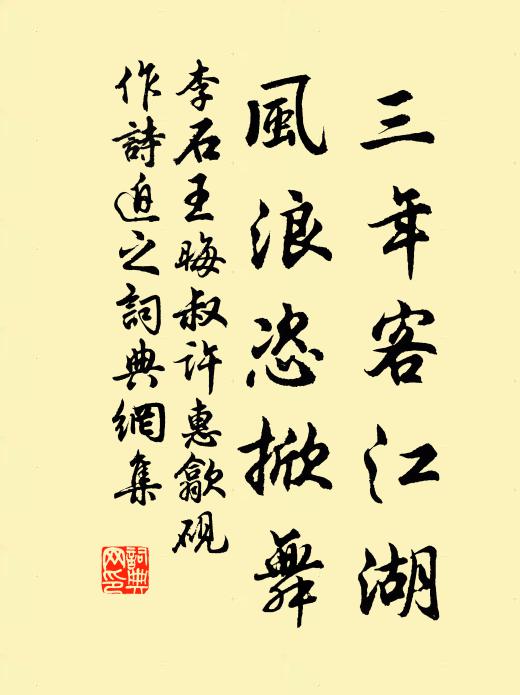 三年客江湖
風浪恣掀舞
李石王晦叔許惠歙硯
作詩迫之詞典網集
詞典網印